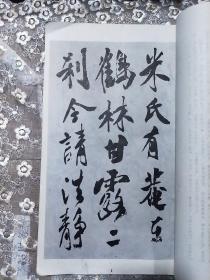 米氏有菴在
鶴林甘露二
刹今請法靜